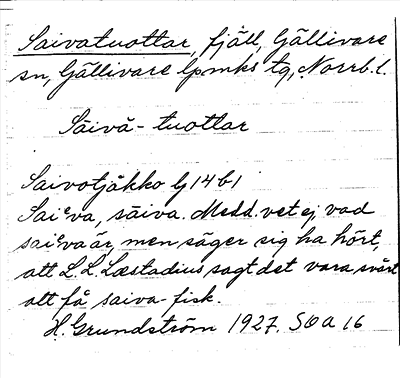 Saivatuottar, fjäll, Gällivare
sn, Gällivare lpmks tg, Norrb. l.
Säivä-tuottar
Saivotjåkko G 14 b 1
Saiᵉva, säiva. Medd. vet ej vad
saiᵉva är, men säger sig ha hört,
att L. L. Læstadius sagt det vara svårt
att få saiva-fisk.
H. Grundström 1927. SOA 16